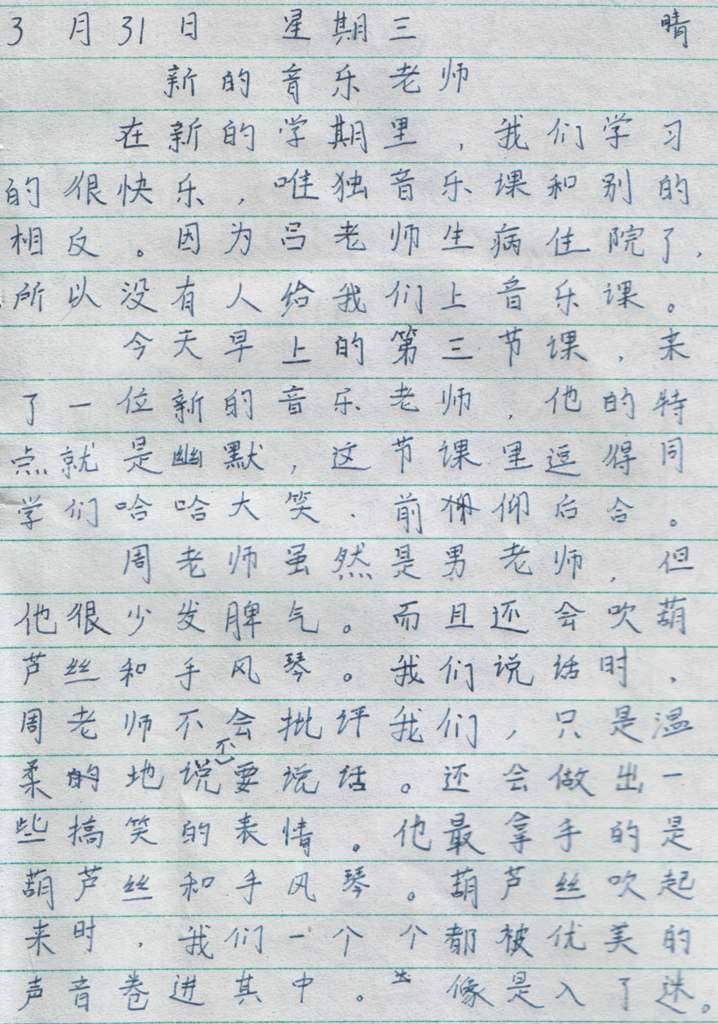 3月31日 星期三 晴
新的音乐老师
在新的学期里，我们学习
的很快乐，唯独音乐课和别的
相反。因为吕老师生病住院了，
所以没有人给我们上音乐课。
今天早上的第三节课，来
了一位新的音乐老师，他的特
点就是幽默，这节课里逗得同
学们哈哈大笑．前仰后合。
周老师虽然是男老师，但
他很少发脾气。而且还会吹葫
芦丝和手风琴。我们说话时，
周老师不会批评我们，只是温
柔的地说不要说话。还会做出一
些搞笑的表情。他最拿手的是
葫芦丝和手风琴。葫芦丝吹起
来时，我们一个个都被优美的
声音卷进其中。像是入了迷。